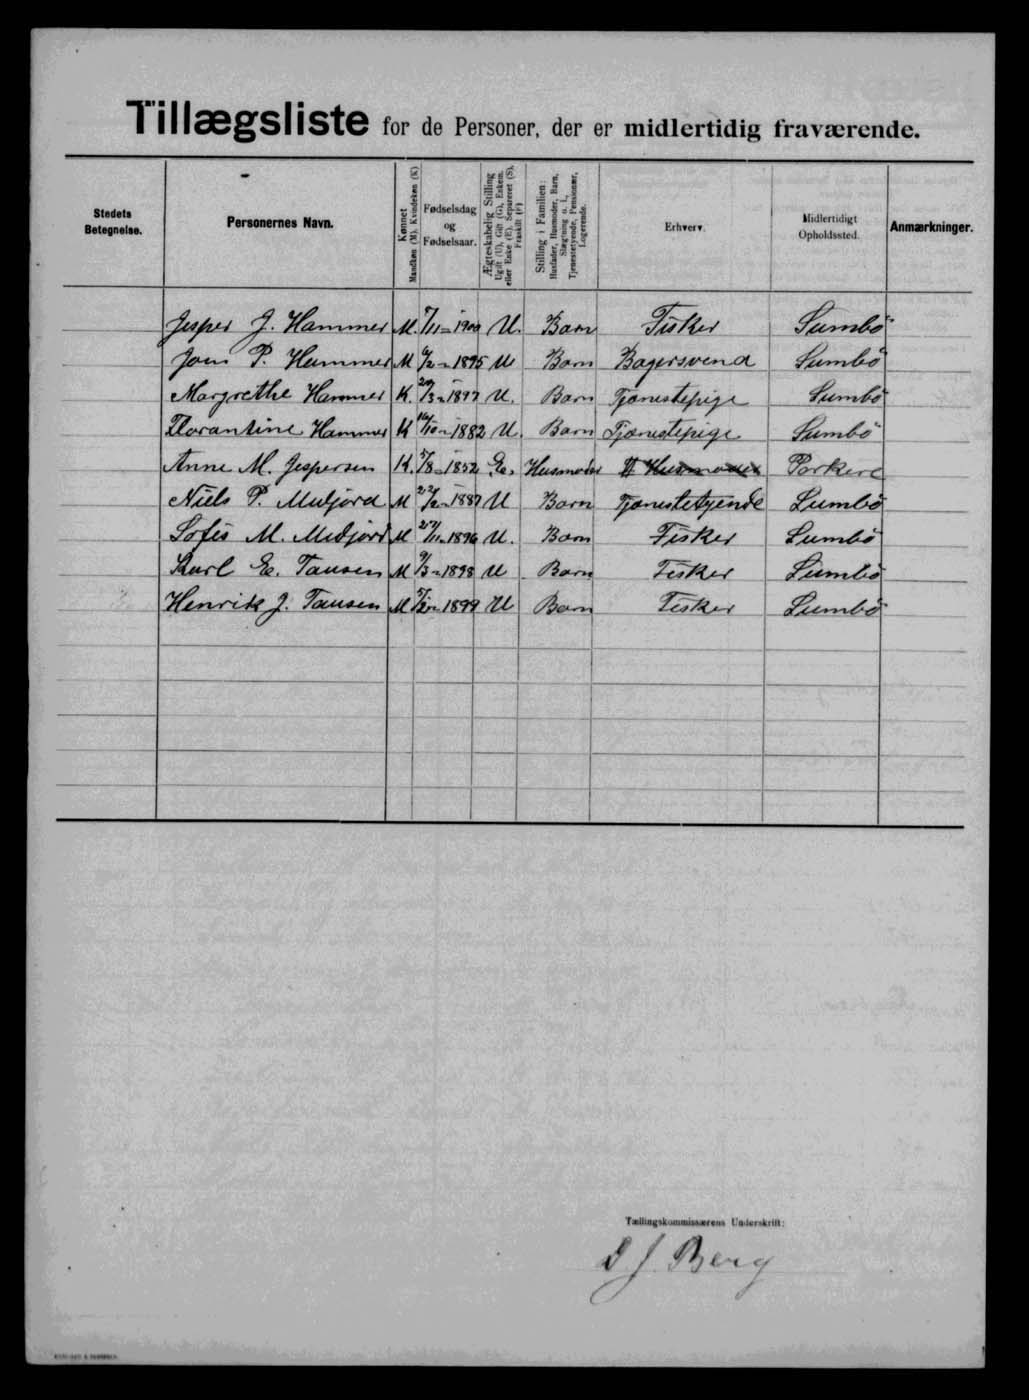 Tillægsliste for de Personer, der er midlertidig fraværende.
Stedets Betegnelse.
Personernes Navn.
Kønnet Mandkøn (M). Kvindekøn (K)
Fødselsdag og Fødselsaar.
Ægteskabelig Stilling Ugift (U), Gift (G), Enkem. eller Enke (E), Separeret (S), Fraskilt (F)
Stilling i Familien: Husfader, Husmoder, Barn, Slægtning o. l., Tjenestetyende, Pensionær, Logerende.
Erhverv.
Midlertidigt Opholdssted.
Anmærkninger.
Jesper J. Hammer M. 7/11 - 1900 U. Barn Fisker Sumbö
Joen P. Hammer M 6/2 - 1895 U Barn Bagersvend Sumbö
Margrethe Hammer K. 20/3 - 1897 U. Barn Tjænestepige Sumbö
Florantine Hammer K 16/10 - 1882 U. Barn Tjænestepige Sumbö
Anne M. Jespersen K. 5/8 - 1852 E. Husmoder Husmoder Porkere
Niels P. Midjord M 22/2 - 1887 U Barn Tjænestetyende Sumbö
Sofus M. Midjord M 25/11 - 1896 U. Barn Fisker Sumbö
Karl E. Tausen M 9/3 - 1898 U Barn Fisker Sumbö
Henrik J. Tausen M 1899 U Barn Fisker Sumbö
Tællingskommissærens Underskrift:
D J. Berg